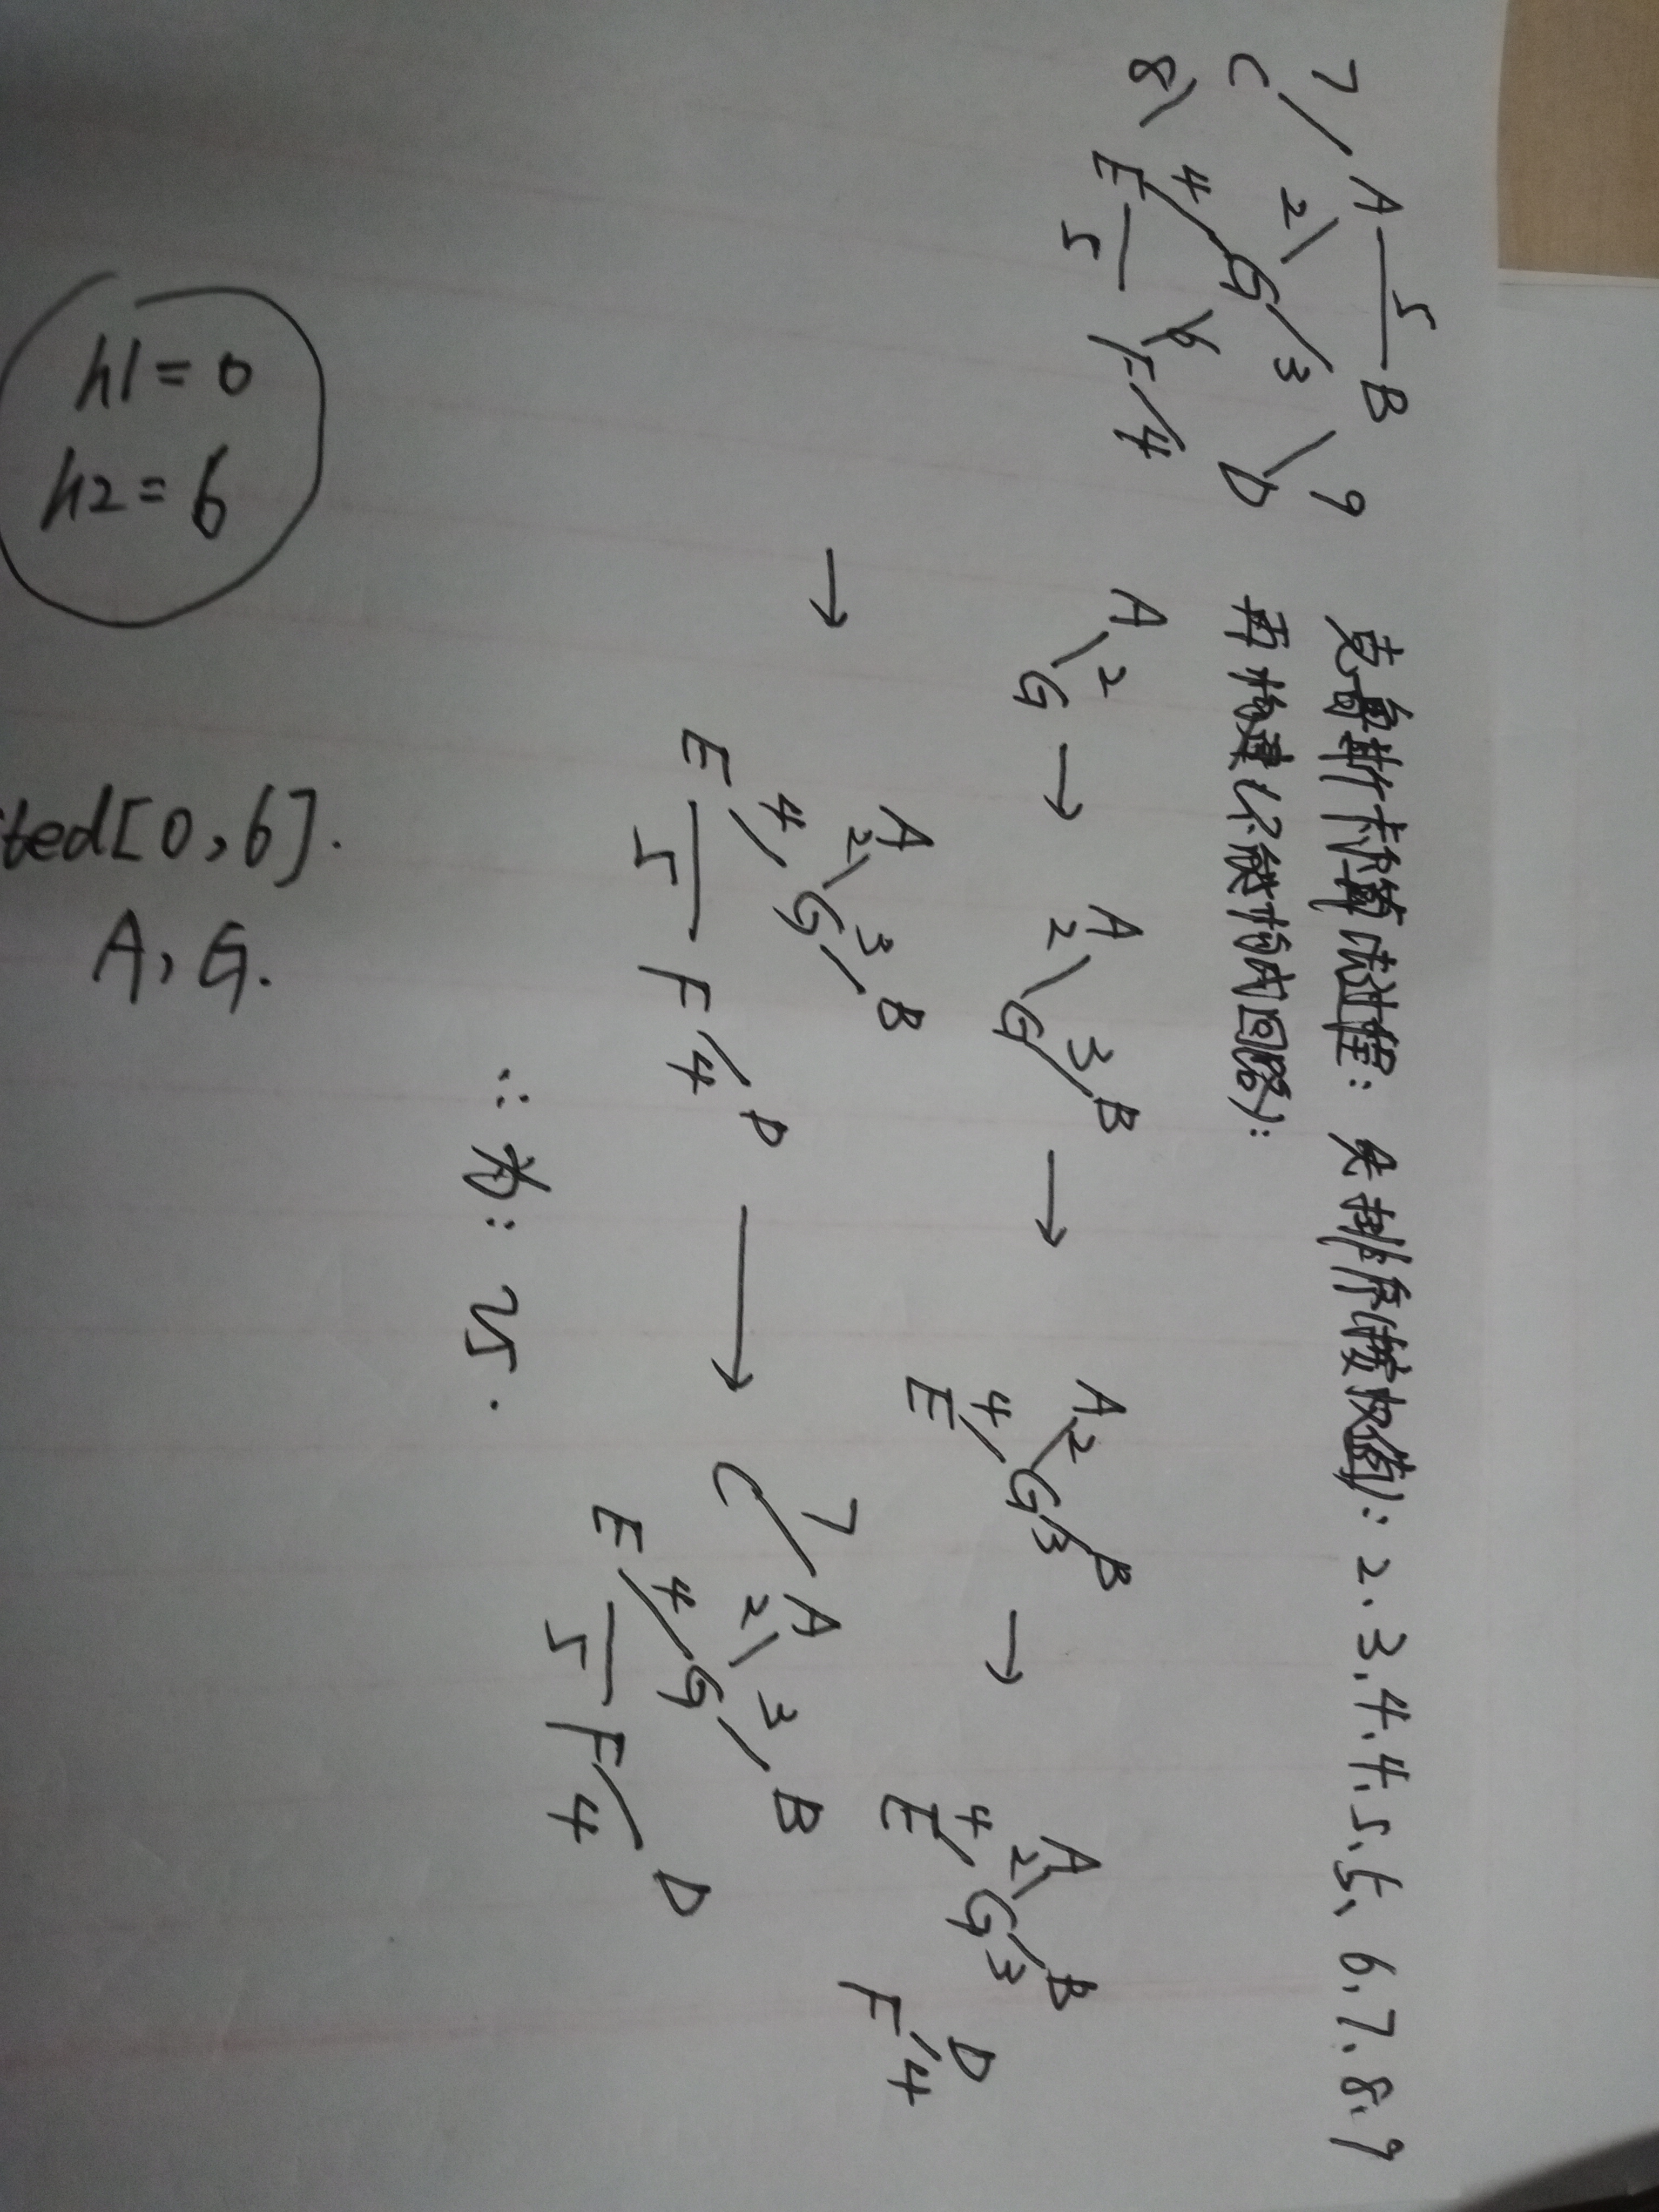 克鲁斯卡尔算法过程: 先排序(按权值): 2、3、4、4、5、5、6、7、8、9
再构建(不能构成回路):
7 A 5 B 9
C 2 3 D
8 4 G 6 4
E 5 F
A 2 G → A 2 G 3 B → A 2 G 3 B E 4 → A 2 G 3 B E 4 F 4 D
→ A 2 G 3 B E 4 5 F 4 D → C 7 A 2 G 3 B E 4 5 F 4 D
∴ 为: 25.
h1=0
h2=6
ted[0,6].
A, G.